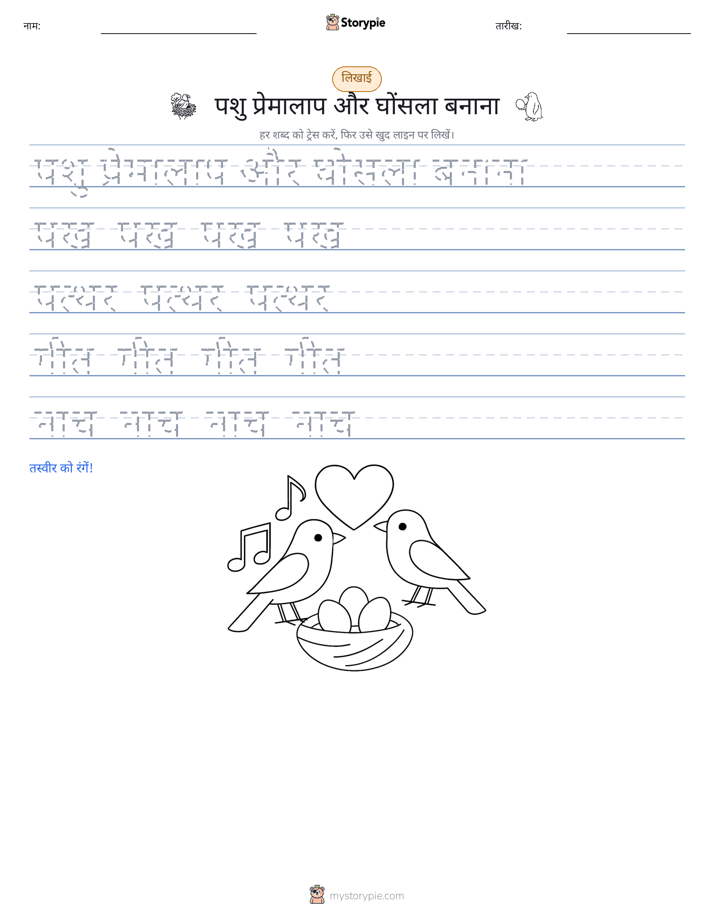 नाम:
Storypie
तारीख:
लिखाई
पशु प्रेमालाप और घोंसला बनाना
हर शब्द को ट्रेस करें, फिर उसे खुद लाइन पर लिखें।
पशु प्रेमालाप और घोंसला बनाना
पंख पंख पंख पंख
पत्थर पत्थर पत्थर
गीत गीत गीत गीत
नाच नाच नाच नाच
तस्वीर को रंगें!
mystorypie.com